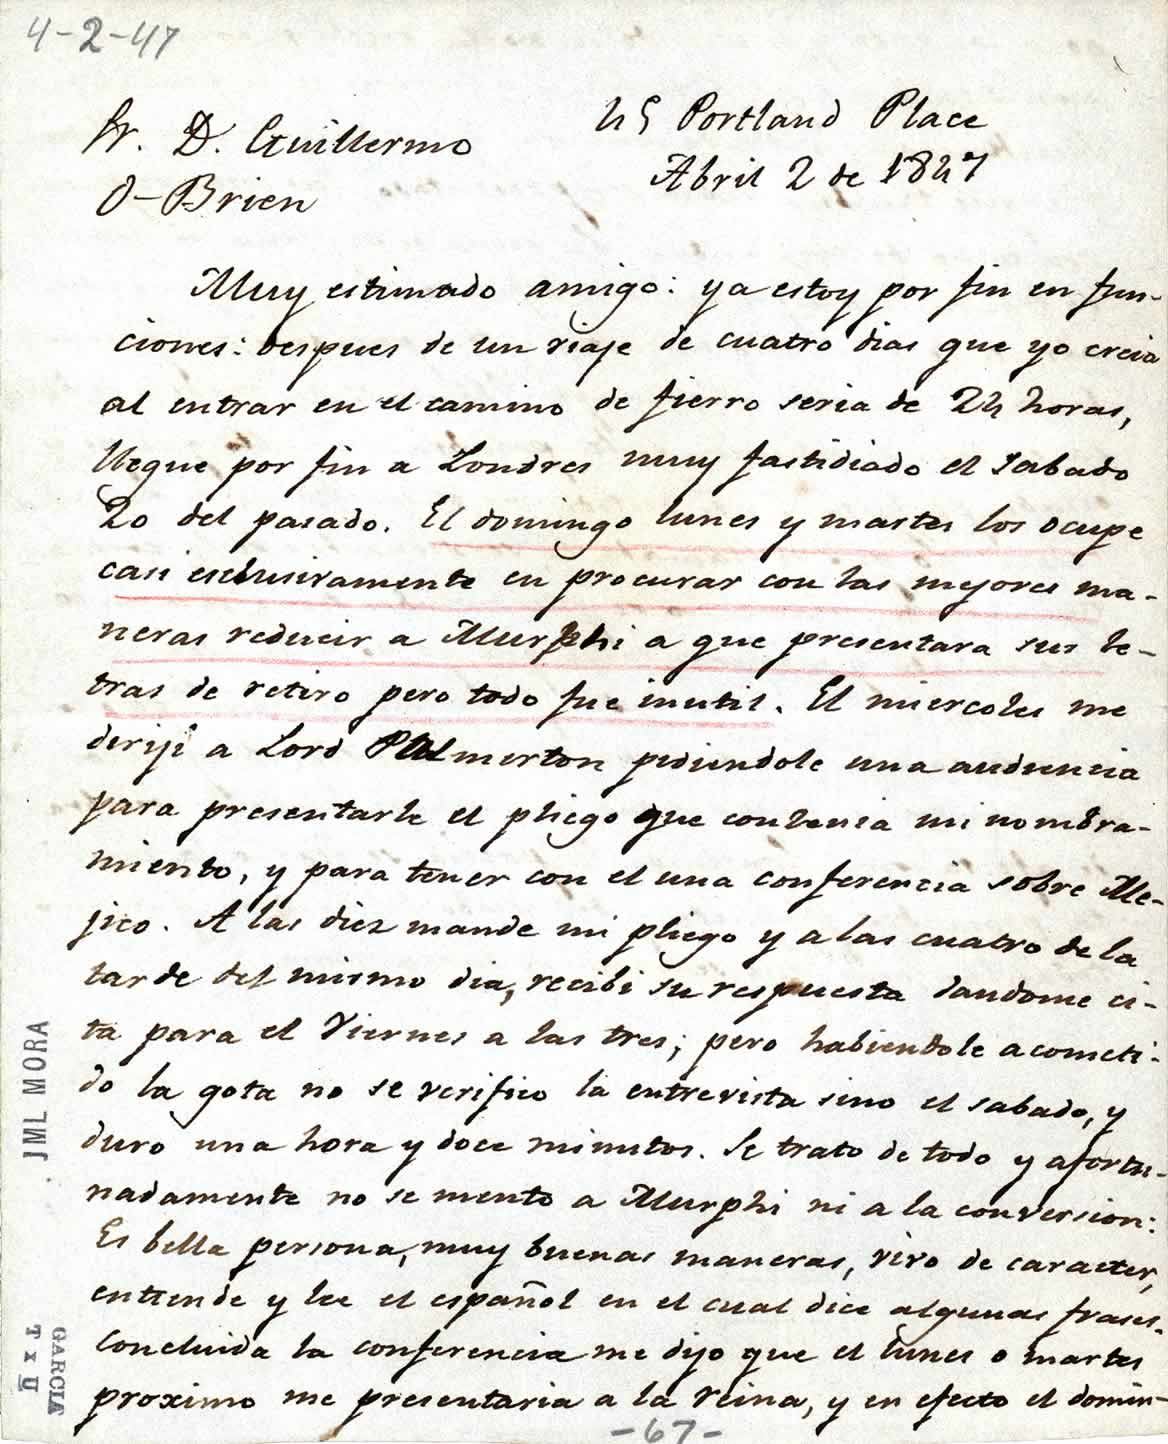 4-2-47
45 Portland Place
Abril 2 de 1847
Sr. D. Guillermo
O-Brien
Muy estimado amigo: ya estoy por fin en fun-
ciones: despues de un viaje de cuatro dias que yo creia
al entrar en el camino de fierro seria de 24 horas,
llegue por fin a Londres muy fastidiado el sabado
20 del pasado. El domingo lunes y martes los ocupe
casi esclusivamente en procurar con las mejores ma-
neras reducir a Murphi a que presentara sus le-
tras de retiro pero todo fue inutil. El miercoles me
diriji a Lord Palmerton pidiendole una audiencia
para presentarle el pliego que contenia mi nombra-
miento, y para tener con el una conferencia sobre Me-
jico. A las diez mande mi pliego y a las cuatro de la
tarde del mismo dia, recibi su respuesta dandome ci-
ta para el Viernes a las tres; pero habiendole acometi-
do la gota no se verifico la entrevista sino el sabado, y
duro una hora y doce minutos. Se trato de todo y afortu-
nadamente no se mento a Murphi ni a la conversion:
Es bella persona, muy buenas maneras, vivo de caracter,
entiende y lee el español en el cual dice algunas frases.
Concluida la conferencia me dijo que el lunes o martes
proximo me presentaria a la reina, y en efecto el domin-
-67-
JML MORA
GARCIA
TxU